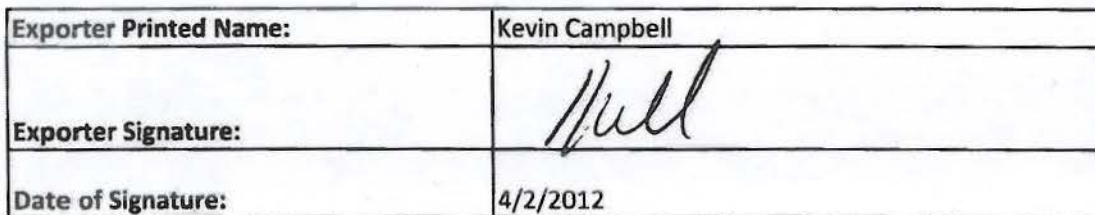 Exporter Printed Name: Kevin Campbell
Exporter Signature:
Date of Signature: 4/2/2012